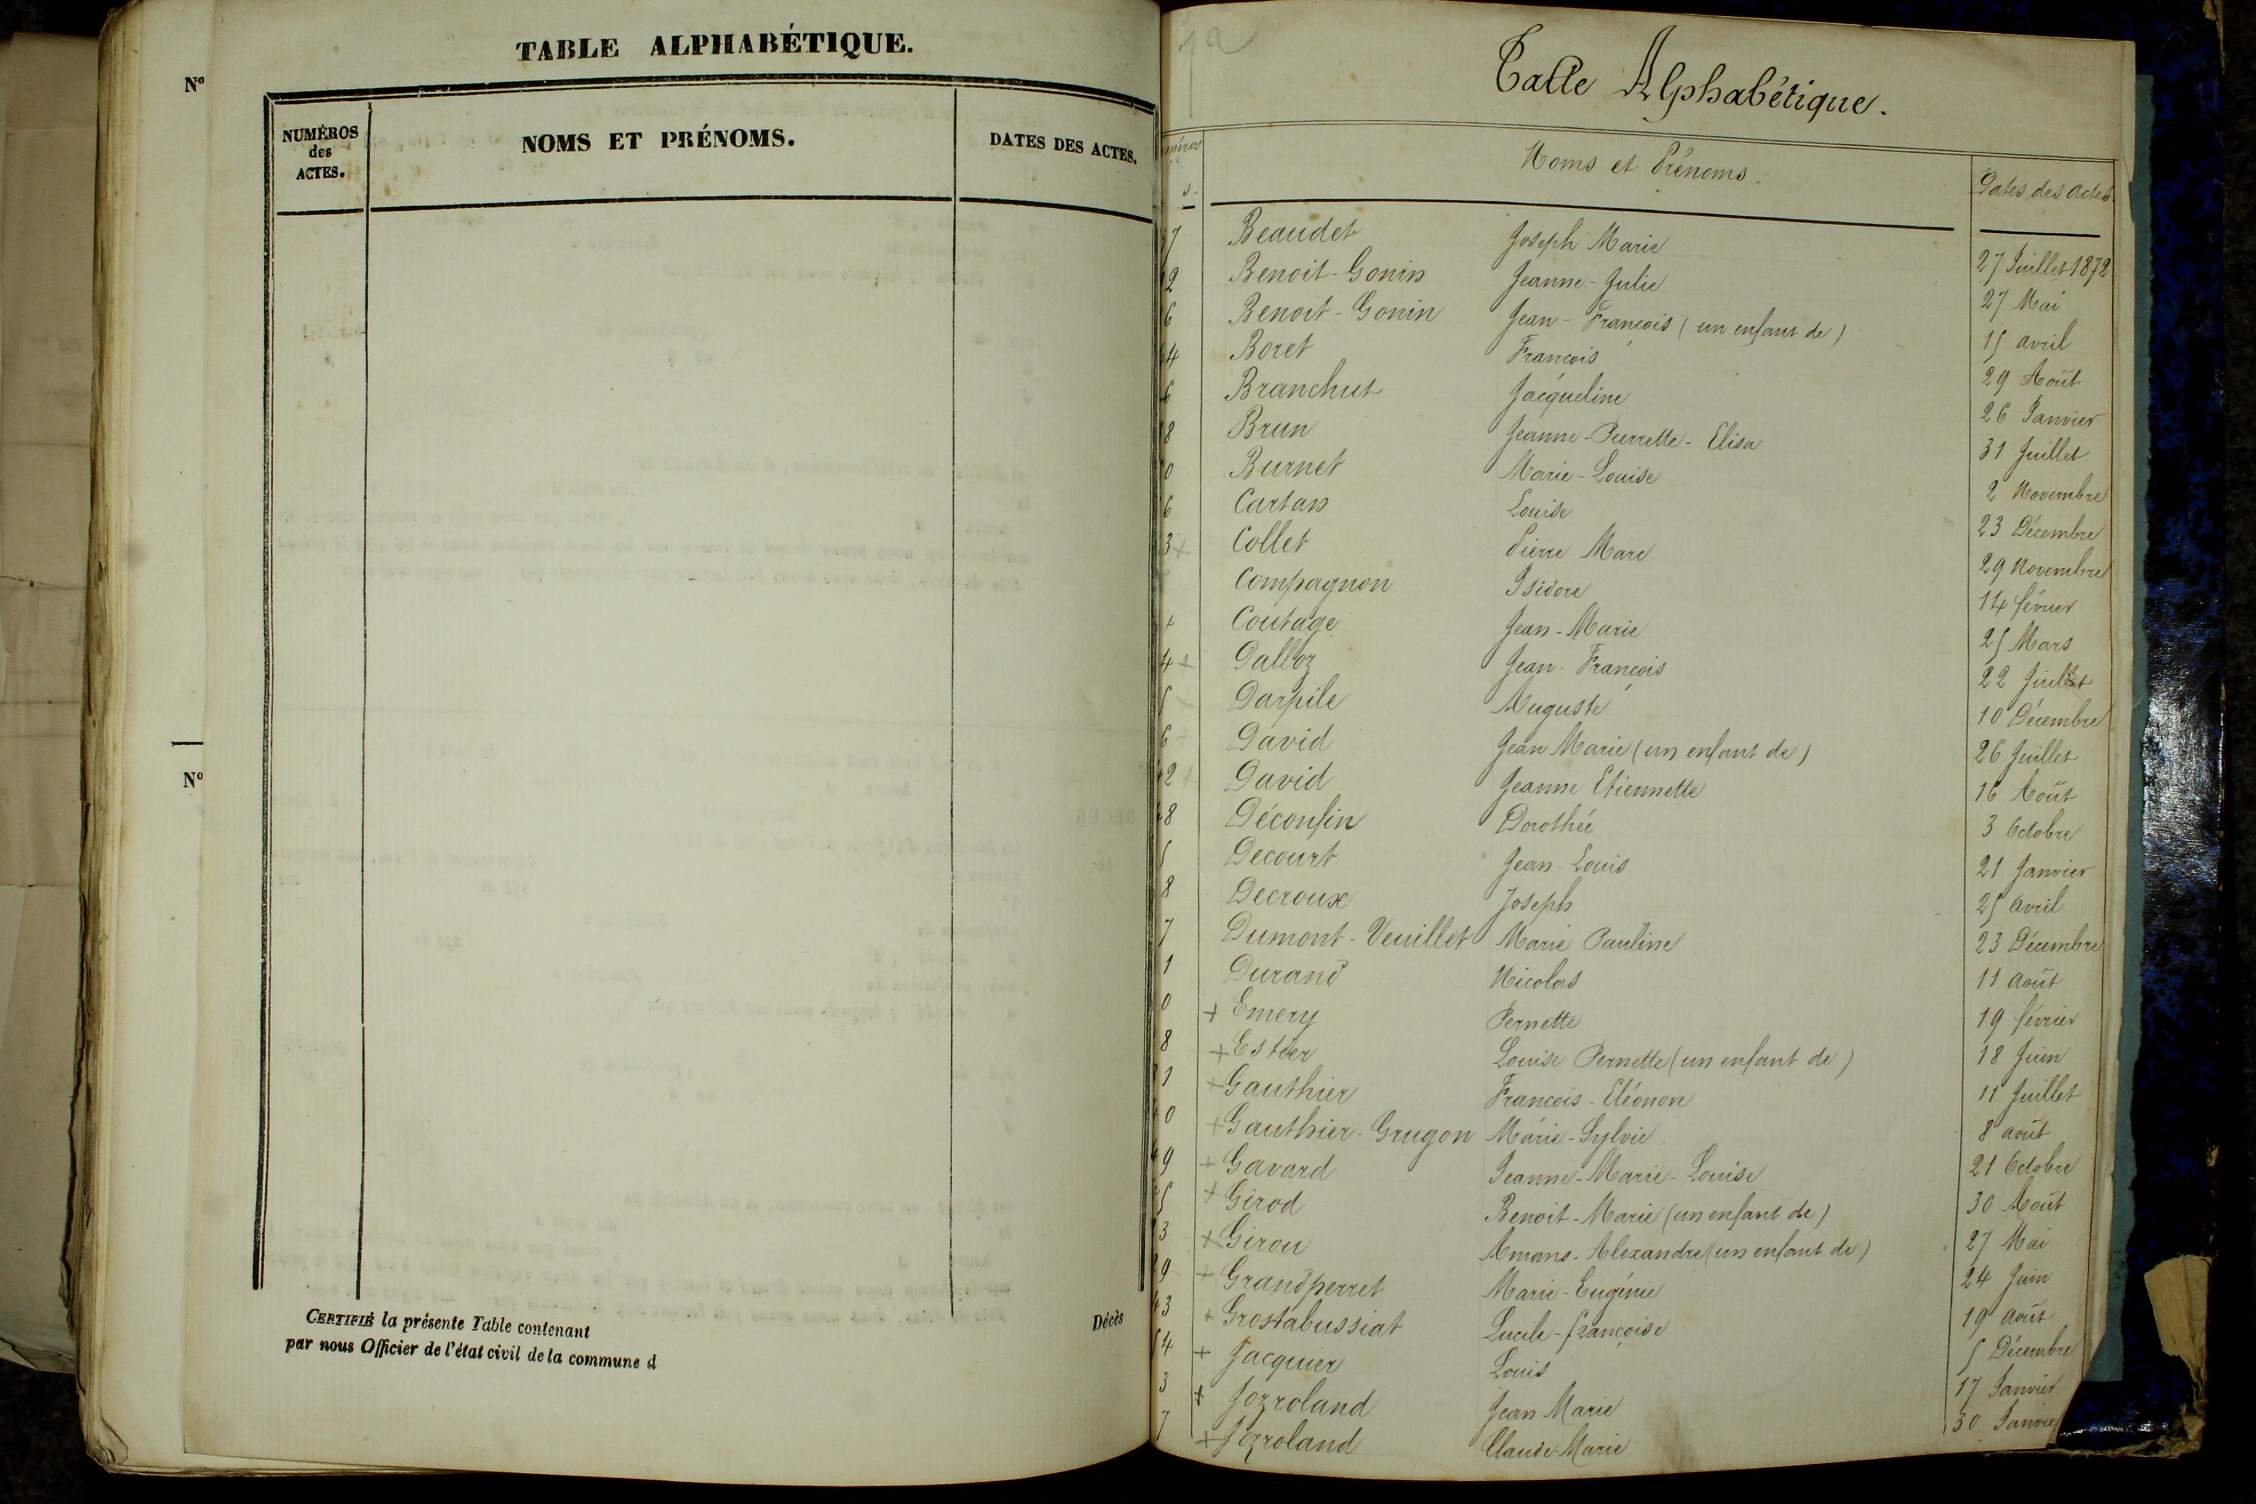 TABLE ALPHABÉTIQUE.
Nº
NUMÉROS
des
ACTES.
NOMS ET PRÉNOMS.
DATES DES ACTES.
Nº
CERTIFIÉ la présente Table contenant
par nous Officier de l'état civil de la commune d
Décès
Table Alphabétique.
Noms et Prénoms.
Dates des actes
7 Beaudet Joseph Marie 27 Juillet 1872
2 Benoit-Gonin Jeanne-Julie 27 Mai
6 Benoit-Gonin Jean-François (un enfant de) 15 avril
4 Boret François 29 Août
6 Branchut Jacqueline 26 Janvier
8 Brun Jeanne-Pierrette-Elisa 31 Juillet
0 Burnet Marie-Louise 2 Novembre
6 Cartan Louise 23 Décembre
3 + Collet Pierre Marc 29 Novembre
Compagnon Isidore 14 février
+ Coutage Jean-Marie 25 Mars
4 + Dalloz Jean-François 22 Juillet
5 Darpile Auguste 10 Décembre
6 David Jean Marie (un enfant de) 26 Juillet
2 David Jeanne Etiennette 16 Août
8 Déconfin Dorothée 3 Octobre
5 Decourt Jean-Louis 21 Janvier
8 Decroux Joseph 25 avril
7 Dumont-Veuillet Marie Pauline 23 Décembre
1 Durand Nicolas 11 août
0 + Emery Pernette 19 février
8 + Estier Louise Pernette (un enfant de) 18 Juin
1 + Gauthier François-Eléonon 11 Juillet
0 + Gauthier-Grugon Marie-Sylvie 8 août
9 + Gavard Jeanne-Marie-Louise 21 Octobre
5 + Girod Benoit-Marie (un enfant de) 30 Août
3 + Girou Amans-Alexandre (un enfant de) 27 Mai
9 + Grandperret Marie-Eugénie 24 Juin
43 + Grostabussiat Lucile-françoise 19 août
54 + Jacquier Louis 5 Décembre
3 + Jozroland Jean Marie 17 Janvier
7 + Jozroland Claude-Marie 30 Janvier